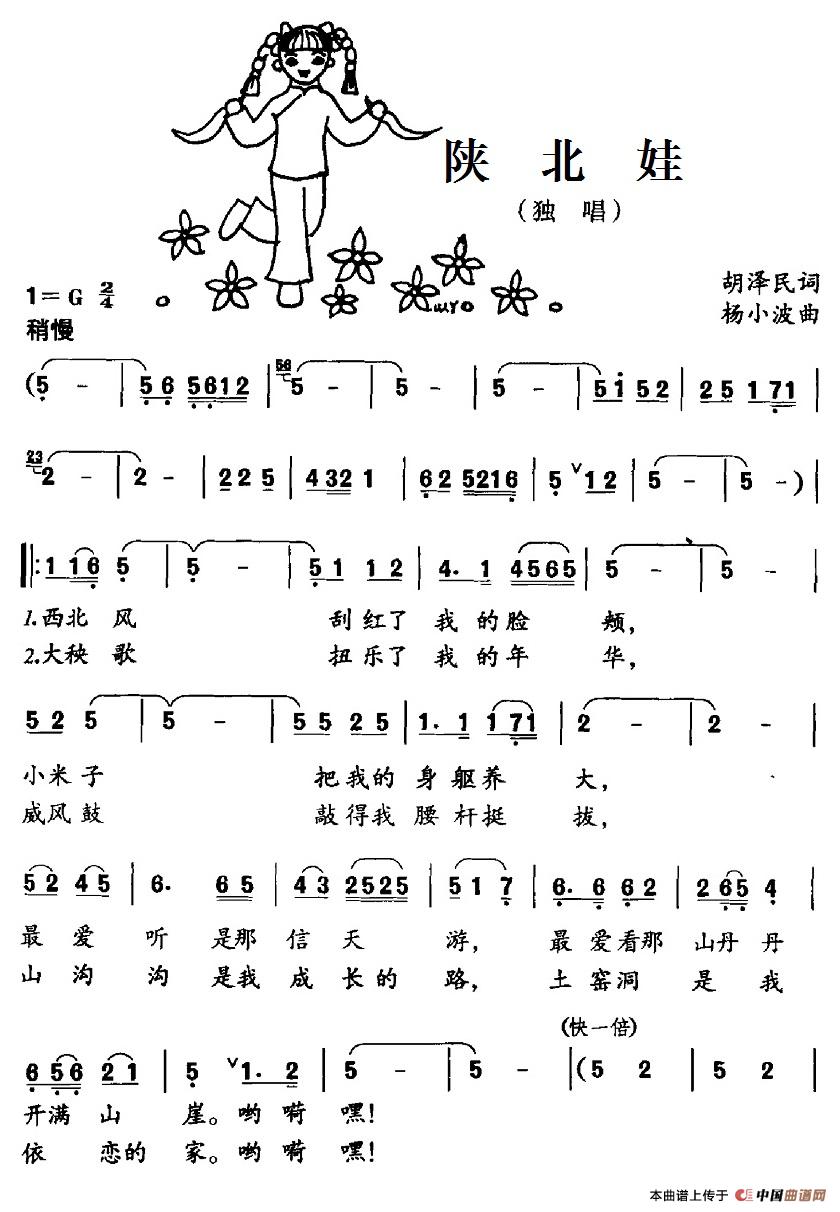 陕 北 娃
（独 唱）
胡泽民词
1= G 2/4
杨小波曲
稍慢
(5 - | 5 6 5612 | 56 5 - | 5 - | 5 - | 5i 52 | 25 171 |
23 2 - | 2 - | 2 2 5 | 432 1 | 62 5216 | 5 ∨12 | 5 - | 5 - )
‖: 116 5 | 5 - | 51 12 | 4. 1 4565 | 5 - | 5 - |
1.西北 风 刮红了 我 的脸 颊，
2.大秧 歌 扭乐了 我 的年 华，
52 5 | 5 - | 55 25 | 1. 1 171 | 2 - | 2 - |
小米子 把我的 身 躯养 大，
威风鼓 敲得我 腰 杆挺 拔，
52 45 | 6. 65 | 43 2525 | 517 | 6. 6 62 | 265 4 |
最 爱 听 是那 信 天 游， 最 爱看那 山丹 丹
山 沟 沟 是我 成 长 的 路， 土 窑洞 是 我
(快一倍)
656 21 | 5 ∨1. 2 | 5 - | 5 - | (5 2 | 5 2 |
开满 山 崖。哟 嗬 嘿！
依 恋的 家。哟 嗬 嘿！
本曲谱上传于 中国曲谱网